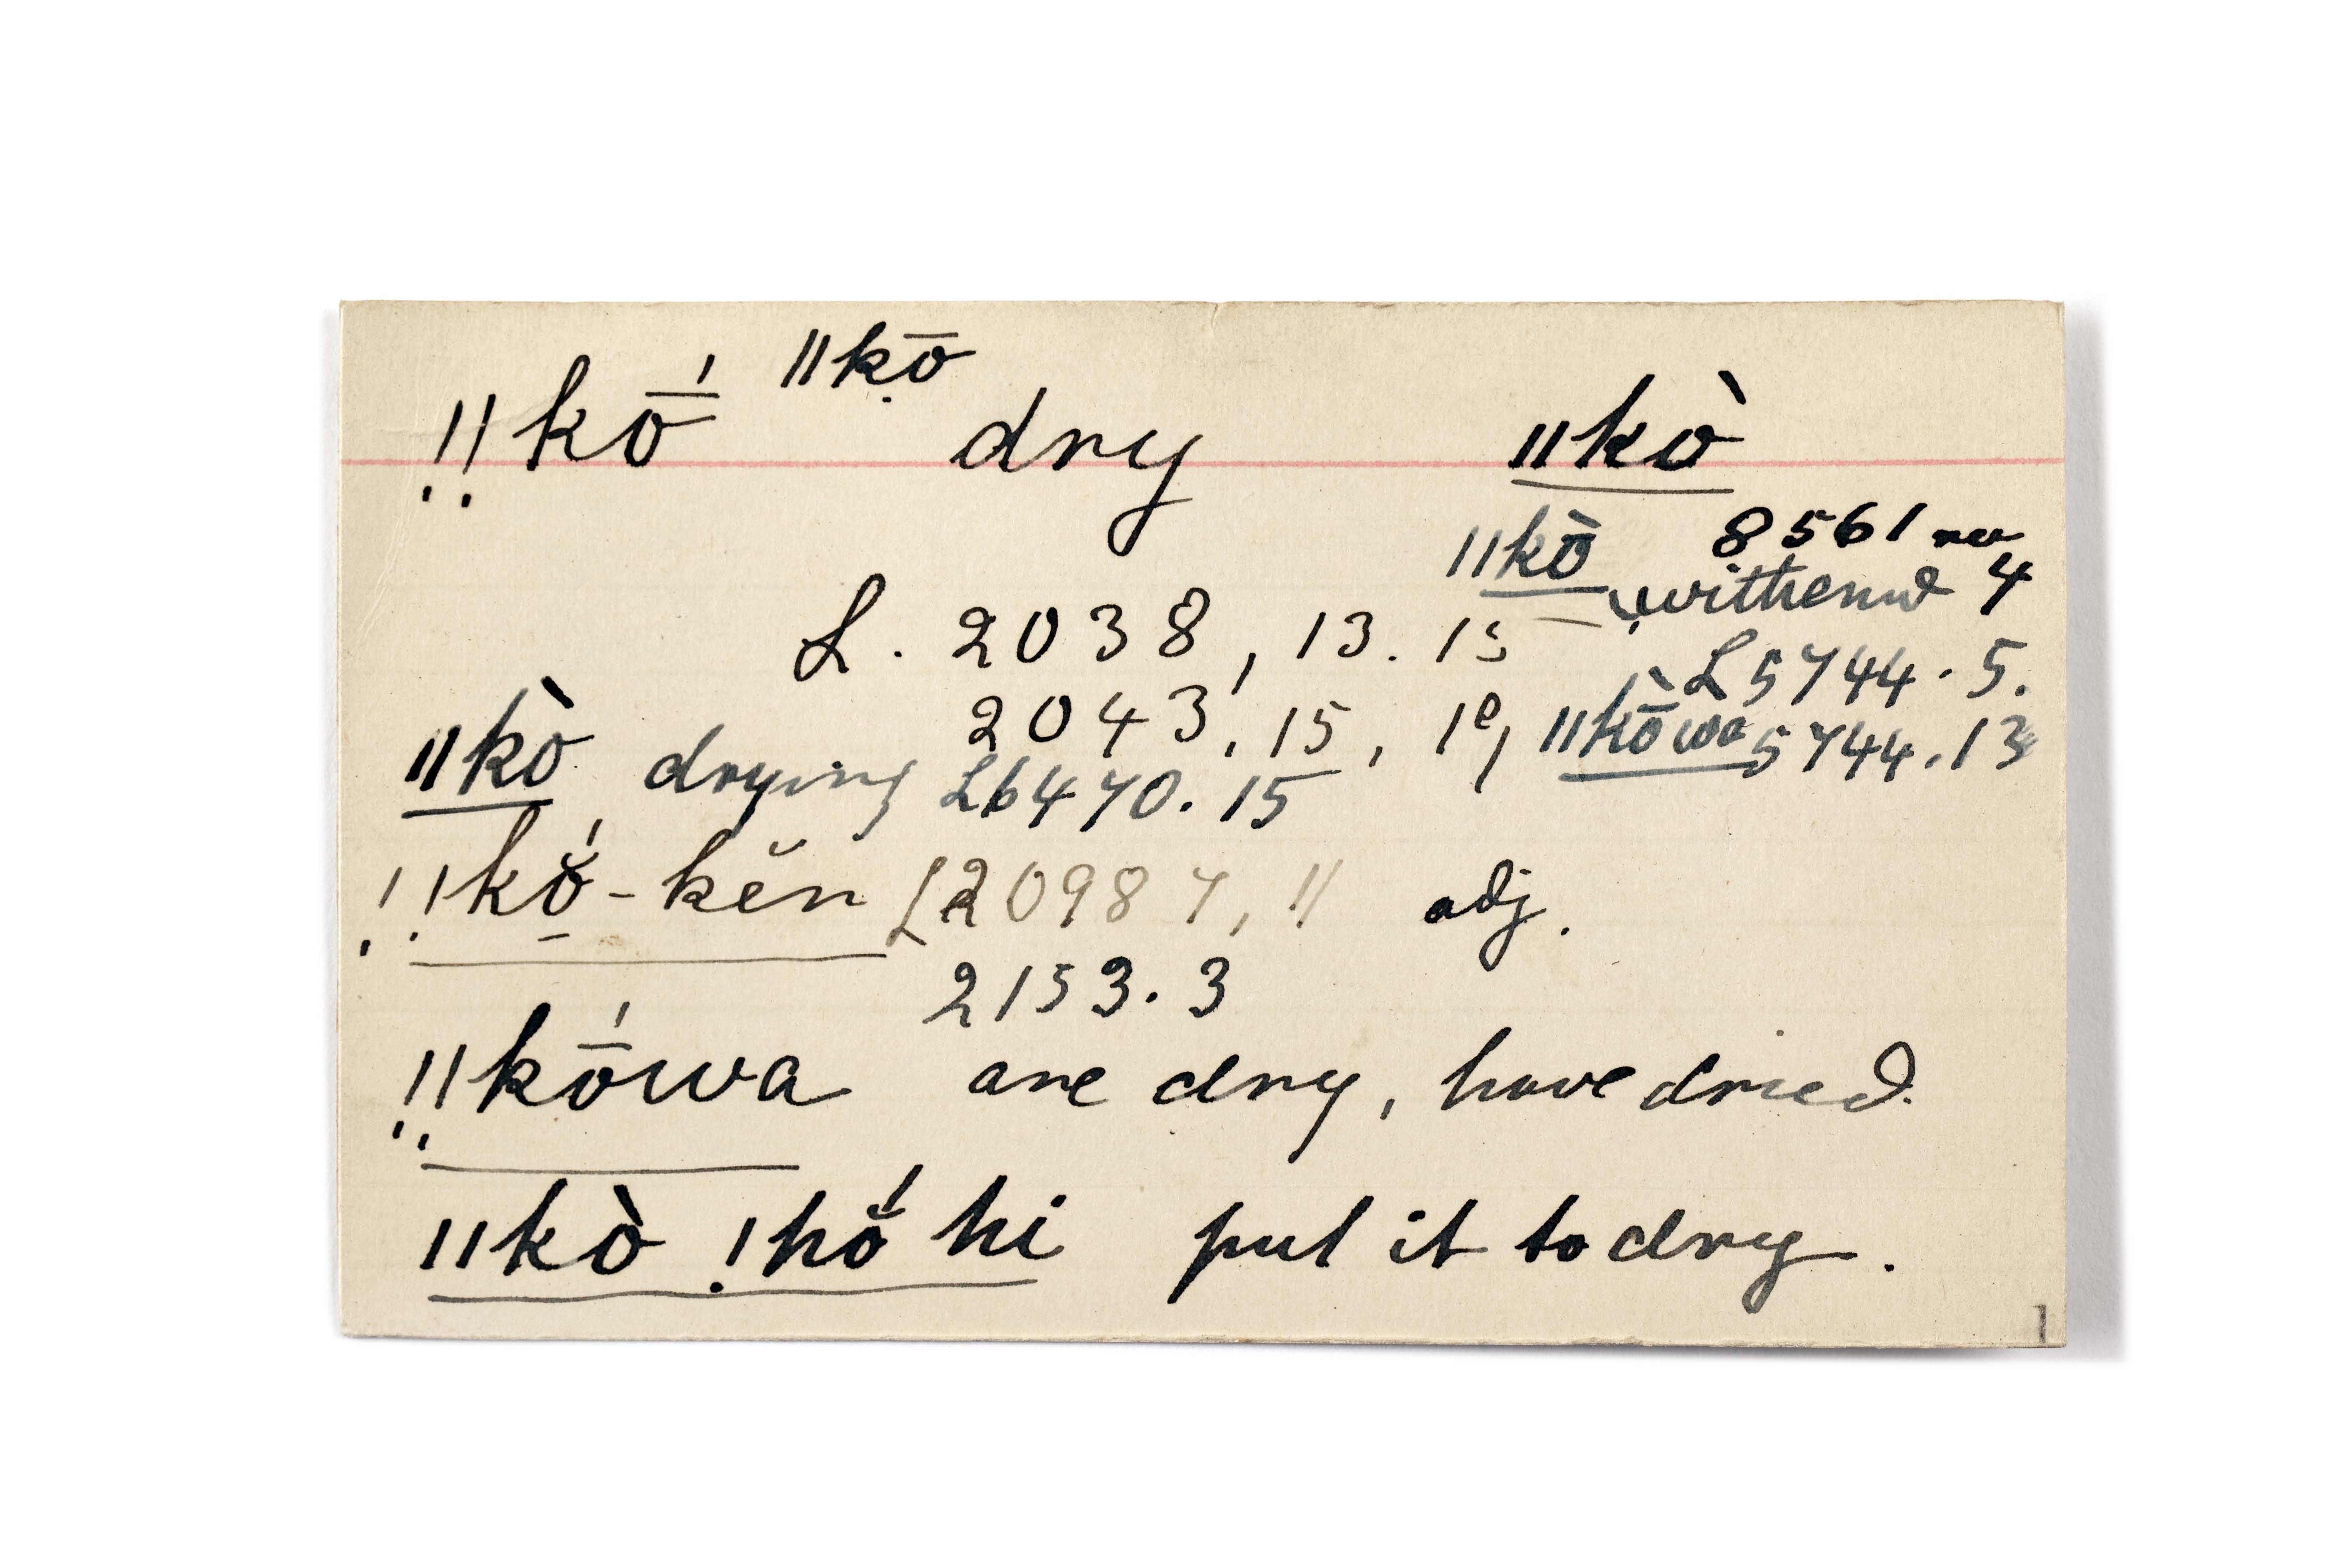 ǁkọ̄
!!kṓ dry ǁkò
ǁkṑ 8561 rev
withered 4
L. 2038, 13. 15 L 5744. 5.
2043', 15, 19, ǁkṑwa 5744. 13
ǁkò drying L 6470. 15
!!kŏ́-kĕn L 2098 7, 11 adj.
2153. 3
!!kṓwa are dry, have dried.
ǁkò !hŏ́ hi put it to dry.
1